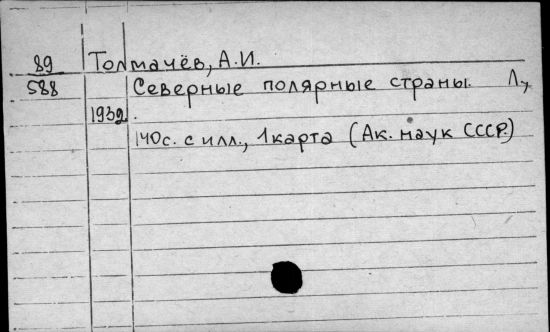 89 Толмачёв, А.И.
588 Северные полярные страны. Л.,
1932.
140с. с илл., 1 карта (Ак. наук СССР.)